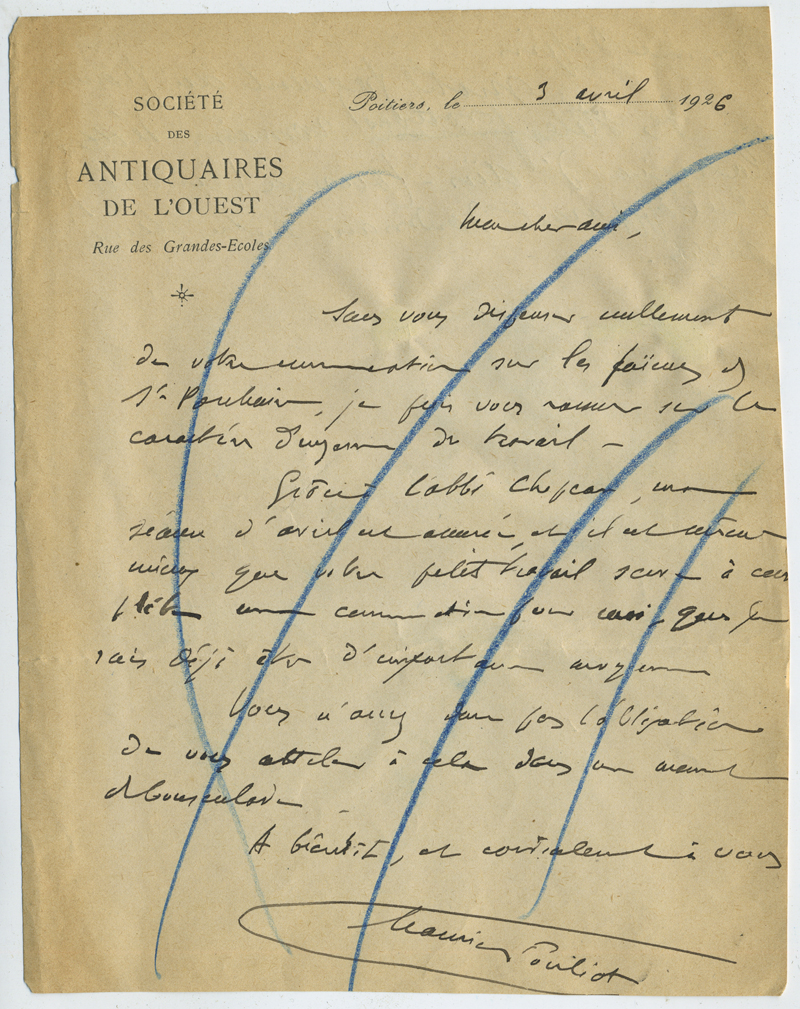 SOCIÉTÉ
DES
ANTIQUAIRES
DE L'OUEST
Rue des Grandes-Ecoles
Poitiers, le 3 avril 1926
Mon cher ami,
Sans vous dispenser nullement
de votre communication sur les faïences de
St Porchaire, je puis vous rassurer sur le
caractère d'urgence du travail —
Grâce à l'abbé, ma
séance d'avril est assurée, et il est
mieux que votre petit travail serve à com
pléter une communication pour mai, que je
sais déjà être d'importance moyenne
Vous n'avez donc pas l'obligation
de vous atteler à cela dans un moment
de bousculade
A bientôt, et cordialement à vous
Maurice Pouliot